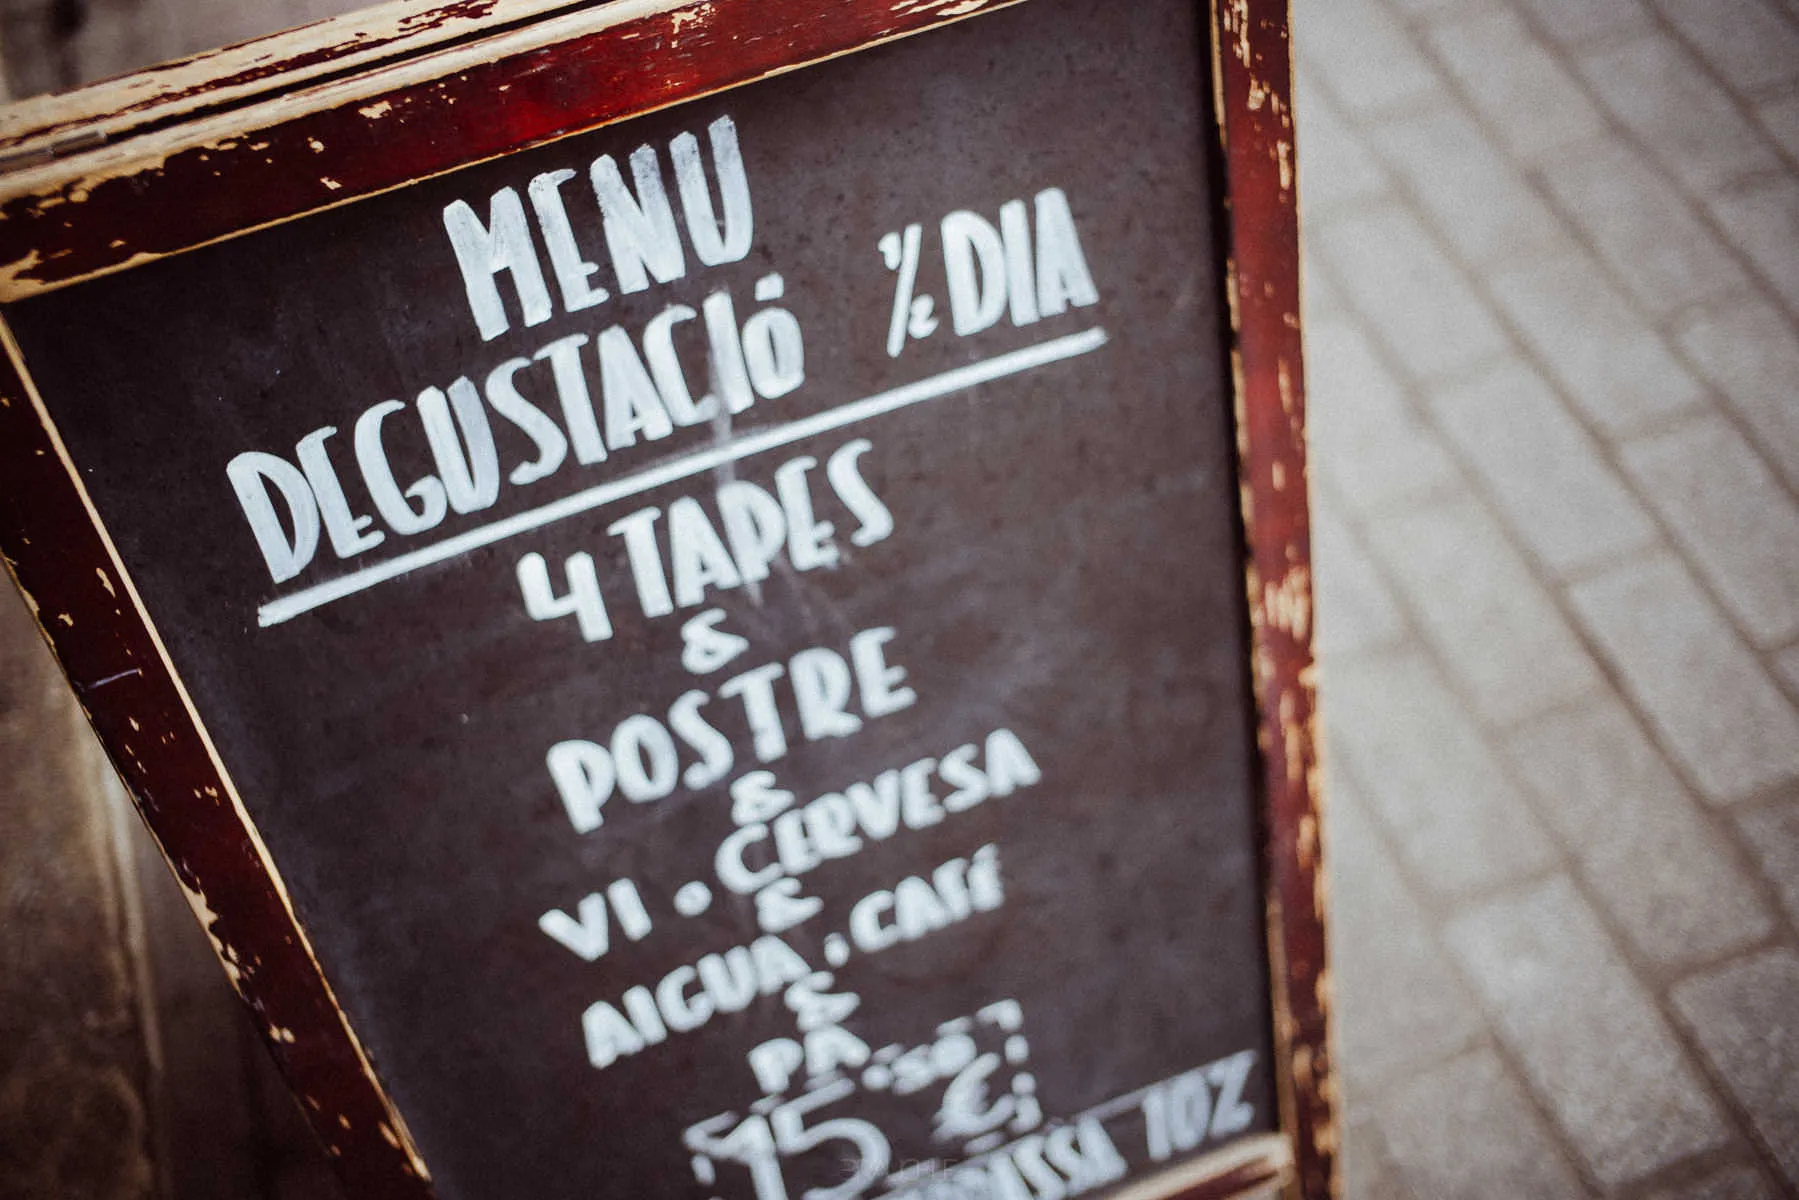 MENU
DEGUSTACIÓ ½ DIA
4 TAPES
&
POSTRE
&
VI o CERVESA
&
AIGUA . CAFÉ
&
PA
15.50 €
10%